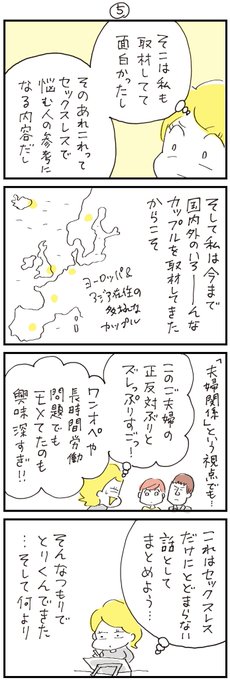 ⑤
そこは私も
取材してて
面白かったし
そのあれこれって
セックスレスで
悩む人の参考に
なる内容だし
そして私は今まで
国内外のいろーーんな
カップルを取材してきた
からこそ
ヨーロッパ&
アジア在住の
多様な
カップル
「夫婦関係」という視点でも…
この二夫婦の
正反対ぶりと
ズレっぷりすごっ!
ワンオペや
長時間労働
問題でも
モメてたのも
興味深すぎ!!
これはセックスレス
だけにとどまらない
話として
まとめよう…
そんなつもりで
とりくんできた
…そして何より